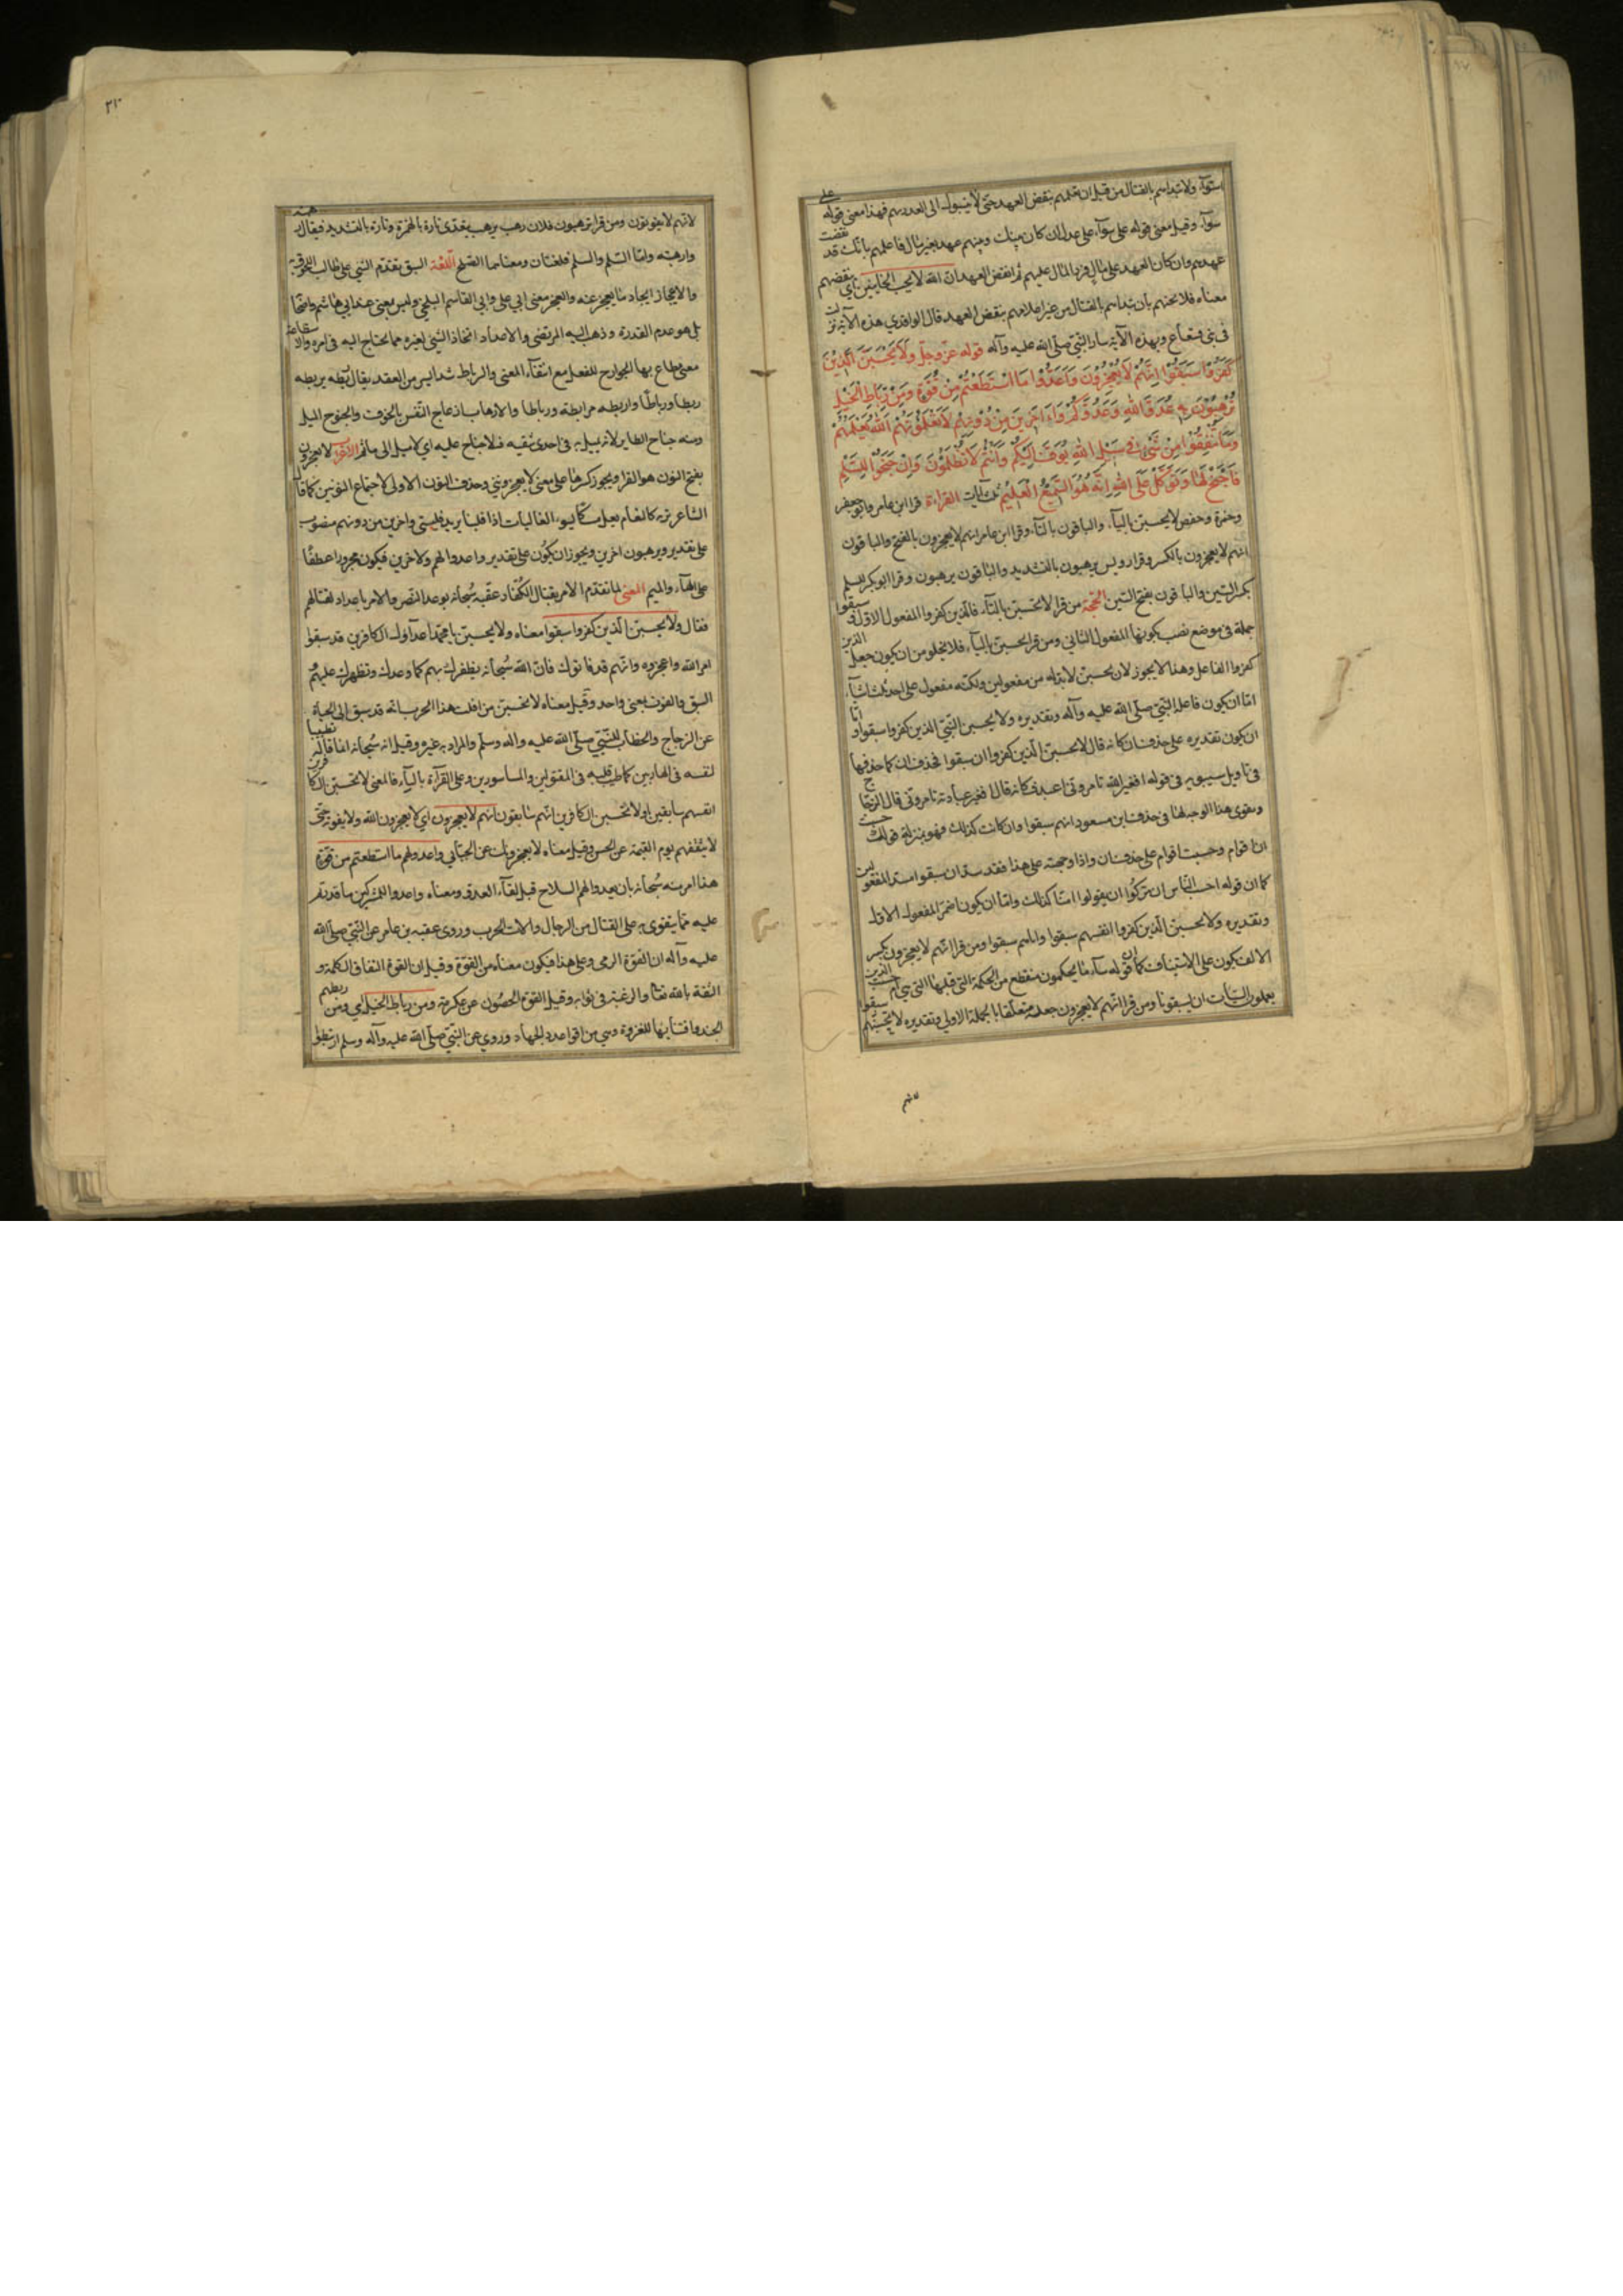 استواء ولا تبدأهم بالقتال من قبل ان تعلمهم بنقض العهد حتى لا ينسبوك الى الغدر بهم فهذا معنى قوله على
سوآء وقيل معنى قوله على سوآء على عدل ان كان بينك وبينهم عهد بغير مال فاعلمهم بانك قد نقضت
عهدهم وان كان العهد على مال فرد المال عليهم ثم انقض العهد ان الله لا يحب الخاينين بنقضهم
معناه فلا تخنهم بان تبدأهم بالقتال من غير اعلامهم بنقض العهد قال الواقدي هذه الآية نزلت
فى بني قينقاع وبهذه الآية سار النبي صلى الله عليه وآله قوله عز وجل ولا يحسبن الذين
كفروا سبقوا انهم لا يعجزون واعدوا لهم ما استطعتم من قوة ومن رباط الخيل
ترهبون به عدو الله وعدوكم وءاخرين من دونهم لا تعلمونهم الله يعلمهم
وما تنفقوا من شئ في سبيل الله يوف اليكم وانتم لا تظلمون وان جنحوا للسلم
فاجنح لها وتوكل على الله انه هو السميع العليم ثلث آيات القراءة قرا ابن عامر وابو جعفر
وحمزة وحفص لا يحسبن باليآء والباقون بالتآء وقرا ابن عامر انهم لا يعجزون بالفتح والباقون
انهم لا يعجزون بالكسر وقرا رويس يرهبون بالتشديد والباقون يرهبون وقرا ابو بكر للسلم
بكسر السين والباقون بفتح السين الحجة من قرا لا تحسبن بالتآء فالذين كفروا المفعول الاول وسبقوا
جملة فى موضع نصب بكونها المفعول الثاني ومن قرا يحسبن باليآء فلا يخلو من ان يكون جعل الذين
كفروا الفاعل وهذا لا يجوز لان يحسبن لابد له من مفعولين ولكنه مفعول على احد ثلث اشيآء
اما ان يكون فاعله النبي صلى الله عليه وآله وتقديره ولا يحسبن النبي الذين كفروا سبقوا واما
ان يكون تقديره على حذف ان كانه قال لا يحسبن الذين كفروا ان سبقوا فحذف ان كما حذفها
فى تاويل سيبويه فى قوله افغير الله تامروني اعبد فكانه قال افغير عبادته تامروني قال الزجاج
ويقوى هذا الوجه انها فى حرف ابن مسعود انهم سبقوا وان كانت كذلك فهو بمنزلة قولك حسبت
ان اقوام وحسبت اقوام على حذف ان واذا وجهته على هذا فقد سد ان سبقوا مسد المفعولين
كما ان قوله احسب الناس ان يتركوا ان يقولوا امنا كذلك واما ان يكون اضمر المفعول الاول
وتقديره ولا يحسبن الذين كفروا انفسهم سبقوا واياهم سبقوا ومن قرا انهم لا يعجزون بكسر
الالف يكون على الاستيناف كما ان قوله سآء ما يحكمون منقطع من الجملة التي قبلها التي هي ام حسب الذين
يعملون السيآت ان يسبقونا ومن قرا انهم لا يعجزون جعله متعلقا بالجملة الاولي وتقديره لا تحسبنهم سبقوا
٢١٠
لانهم لا يفوتون ومن قرا ترهبون فلان رهب يرهب يتعدى تارة بالهمزة وتارة بالتشديد فيقال رهبته
وارهبته واما السَّلم والسِّلم فلغتان ومعناهما الصلح اللغة السبق تقدم الشي على طالب اللحوق به
والاعجاز ايجاد ما يعجز عنه والعجز معنى عند ابي على وابي القاسم البلخي وليس بمعنى عند ابي هاشم وانما
بل هو عدم القدرة وذهب اليه المرتضى والاعداد اتخاذ الشي لغيره مما يحتاج اليه فى امره والاستطاعة
معنى تطاع بها الجوارح للفعل مع انتفآء المنع والرباط شد ايسر من العقد يقال ربطه يربطه
ربطا ورباطا واربطه مرابطة ورباطا والارهاب ازعاج النفس بالخوف والجنوح الميل
ومنه جناح الطاير لانه يميل به فى احدى شقيه فلا جناح عليه اي لا ميل الى ماثم الاعراب لا يعجزون
بفتح النون هو القرا ويجوز كسرها على معنى لا يعجزونني وحذف النون الاولى لاجتماع النونين كما قال
الشاعر تراه كالثغام يعل مسكا يسوء الفاليات اذا فلينا يريد فلينني واخرين من دونهم منصوب
على تقدير ويرهبون اخرين ويجوز ان يكون على تقدير واعدوا لهم ولاخرين فيكون مجرورا عطفا
على الهآء والميم المعنى لما تقدم الامر بقتال الكفار عقبه سبحانه بوعد النصر والامر باعداد لقتالهم
فقال ولا يحسبن الذين كفروا سبقوا معناه ولا يحسبن يا محمد اعدآءك الكافرين قد سبقوا
امر الله واعجزوه وانهم قد فاتوك فان الله سبحانه يظفرك بهم كما وعدك وتظهرك عليهم
السبق والفوت بمعنى واحد وقيل معناه لا تحسبن من افلت هذا الحرب انه قد سبق الى الحياة
عن الزجاج والخطاب للنبي صلى الله عليه وآله وسلم والمراد به غيره وقيل انه سبحانه انما قاله تطييبا
لنفسه فى الهاربين كما طيب قلبه فى المقتولين والماسورين وعلى القرآة باليآء فالمعنى لا تحسبن الكافرين
انفسهم سابقين او لا تحسبن الكافرين انهم سابقون انهم لا يعجزون اي لا يعجزون الله ولا يفوته حتى
لا يثقفهم يوم القيمة عن الحسن وقيل معناه لا يعجزونك عن الجبائي واعدوا لهم ما استطعتم من قوة
هذا امر منه سبحانه بان يعدوا لهم السلاح قبل لقآء العدو ومعناه واعدوا للمشركين ما قدرتم
عليه مما يتقوى به على القتال من الرجال والات الحرب وروى عقبه بن عامر عن النبي صلى الله
عليه وآله ان القوة الرمى وعلى هذا فيكون معناه من القوة وقيل ان القوة اتفاق الكلمة و
الثقة بالله تعالى والرغبة فى ثوابه وقيل القوة الحصون عن عكرمة ومن رباط الخيل اي ومن ربطهم
الخيل واقتنائها للغزو وهي من اقوا عدد الجهاد وروي عن النبي صلى الله عليه وآله وسلم ارتبطوا